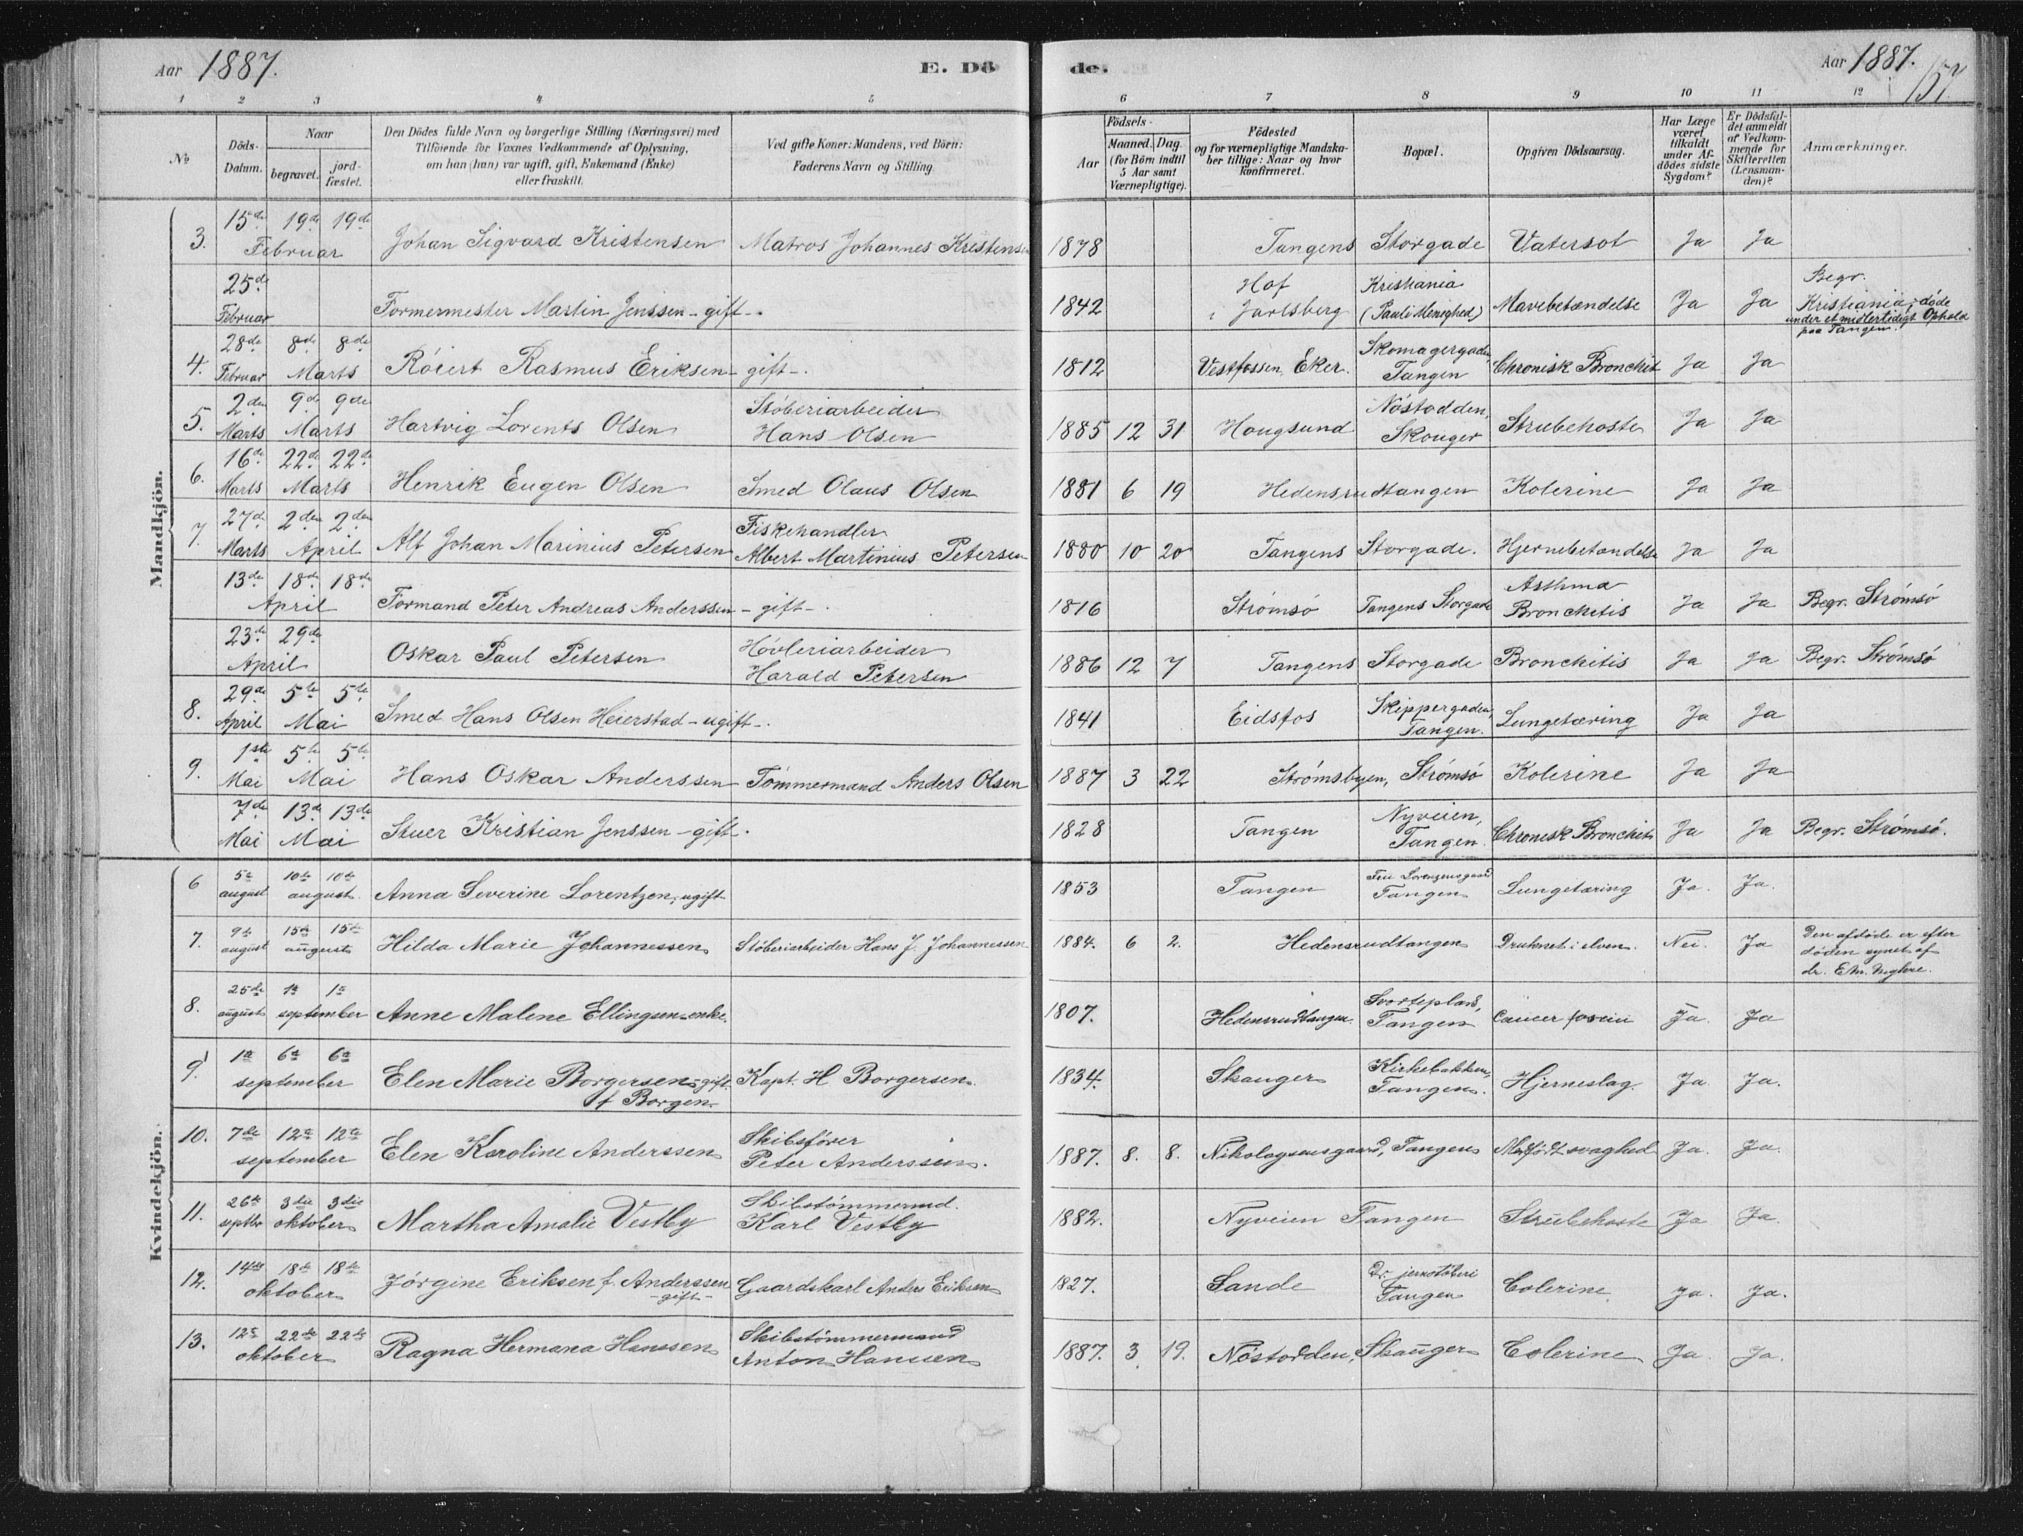 Aar 1887. E. Dö de. Aar 1887. 157
1 2 3 4 5 6 7 8 9 10 11 12
No
Döds-Datum.
Naar
begravet. jordfæstet.
Den Dödes fulde Navn og borgerlige Stilling (Næringsvei) med
Tilföiende for Voxnes Vedkommende af Oplysning,
om han (hun) var ugift, gift, Enkemand (Enke)
eller fraskilt.
Ved gifte Koner: Mandens, ved Börn:
Faderens Navn og Stilling.
Aar
Födsels-
Maaned. Dag
(for Börn indtil
5 Aar samt
Værnepligtige).
Födested
og for værnepligtige Mandska-
ber tillige: Naar og hvor
konfirmeret.
Bopæl.
Opgiven Dödsaarsag.
Har Læge
været
tilkaldt
under Af-
dödes sidste
Sygdom?
Er Dödsfal-
det anmeldt
af Vedkom-
mende for
Skifteretten
(Lensman-
den)?
Anmærkninger.
Mandkjön.
3. 15de Februar 19de 19de Johan Sigvard Kristensen Matros Johannes Kristensen 1878 Tangens Storgade Vatersot Ja Ja
25de Februar Formermester Martin Jenssen - gift -. 1842 Hof i Jarlsberg Kristiania (Pauli Menighed) Mavebetændelse Ja Ja Begr. Kristiania; døde
under et midlertidigt Ophold
paa Tangen.
4. 28de Februar 8de 8de Marts Róiert Rasmus Eriksen - gift -. 1812 Vestfossen, Eker. Skomagergaden, Tangen Chronisk Bronchit Ja Ja
5. 2den Marts 9de 9de Marts Hartvig Lorents Olsen Støberiarbeider Hans Olsen 1885 12 31 Hougsund Nøstodden, Skouger Strubehoste Ja Ja
6. 16de Marts 22de 22de Marts Henrik Eugen Olsen Smed Olaus Olsen 1881 6 19 Hedensrudtangen Kolerine Ja Ja
7. 27de Marts 2den 2den April Alf Johan Marinius Petersen Fiskehandler Albert Martinius Petersen 1880 10 20 Tangens Storgade. Hjernebetændelse Ja Ja
13de 18de 18de April Formand Peter Andreas Anderssen - gift -. 1816 Strømsø Tangens Storgade Asthma Bronchitis Ja Ja Begr. Strømsø
23de 29de April Oskar Paul Petersen Høvleriarbeider Harald Petersen 1886 12 7 Tangens Storgade Bronchitis Ja Ja Begr. Strømsø
8. 29de April 5te 5te Mai Smed Hans Olsen Heierstad - ugift -. 1841 Eidsfos Skippergaden, Tangen. Lungetæring Ja Ja
9. 1ste Mai 5te 5te Mai Hans Oskar Anderssen Tømmermand Anders Olsen 1887 3 22 Strømsbyen, Strømsø Kolerine Ja Ja
7de Mai 13de 13de Mai Stuer Kristian Jenssen - gift -. 1828 Tangen Nyveien, Tangen. Chronisk Bronchit Ja Ja Begr. Strømsø.
Kvindekjön.
6 5te august 10de 10de august Anna Severine Lorentzen, ugift 1853 Tangen Tangen Lungetæring Ja. Ja.
7. 9de august 15de 15de august Hilda Marie Johannessen Støberiarbeider Hans J. Johannessen 1884. 6 2. Hedensrudtangen Druknet i elven. Nei. Ja Den afdøde er efter
døden synet af
dr.
8. 25de august 1ste 1ste september Anne Malene Ellingsen - enke. 1807. Hedensrudtangen Svorteplads, Tangen Cancer Ja. Ja
9. 1ste 6te 6te september Elen Marie Borgersen - gift. f Borgen Kapt. H Borgersen. 1834. Skauger Kirkebakken, Tangen. Hjerneslag. Ja. Ja.
10. 7de 12te 12te september Elen Karoline Anderssen Skibsfører Peter Anderssen. 1887. 8. 8. Nikolaysensgaard, Tangen Medfødt svaghed Ja. Ja.
11. 26de septbr 3die 3die oktober Martha Amalie Vestby Skibstømmermd. Karl Vestby 1882. Nyveien Tangen Strubehoste Ja Ja.
12. 14de 18de 18de oktober Jørgine Eriksen f. Anderssen - gift - Gaardskarl Anders Eriksen 1827. Sande Dr. jernstøberi Tangen Colerine ja. Ja.
13. 12te 22de 22de oktober Ragna Hermana Hanssen Skibstømmermand Anton Hanssen 1887. 3. 19. Nøstodden, Skauger Colerine Ja. Ja.